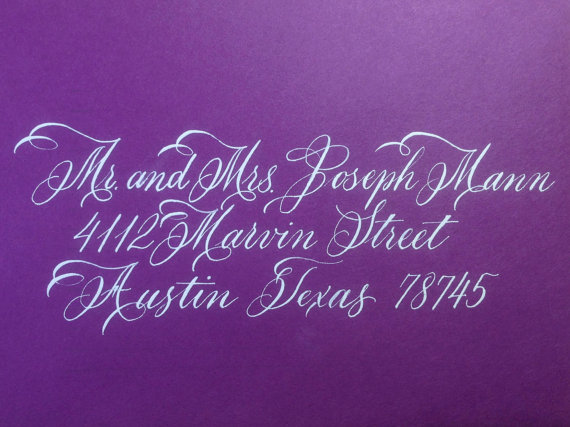 Mr. and Mrs. Joseph Mann
4112 Marvin Street
Austin Texas 78745